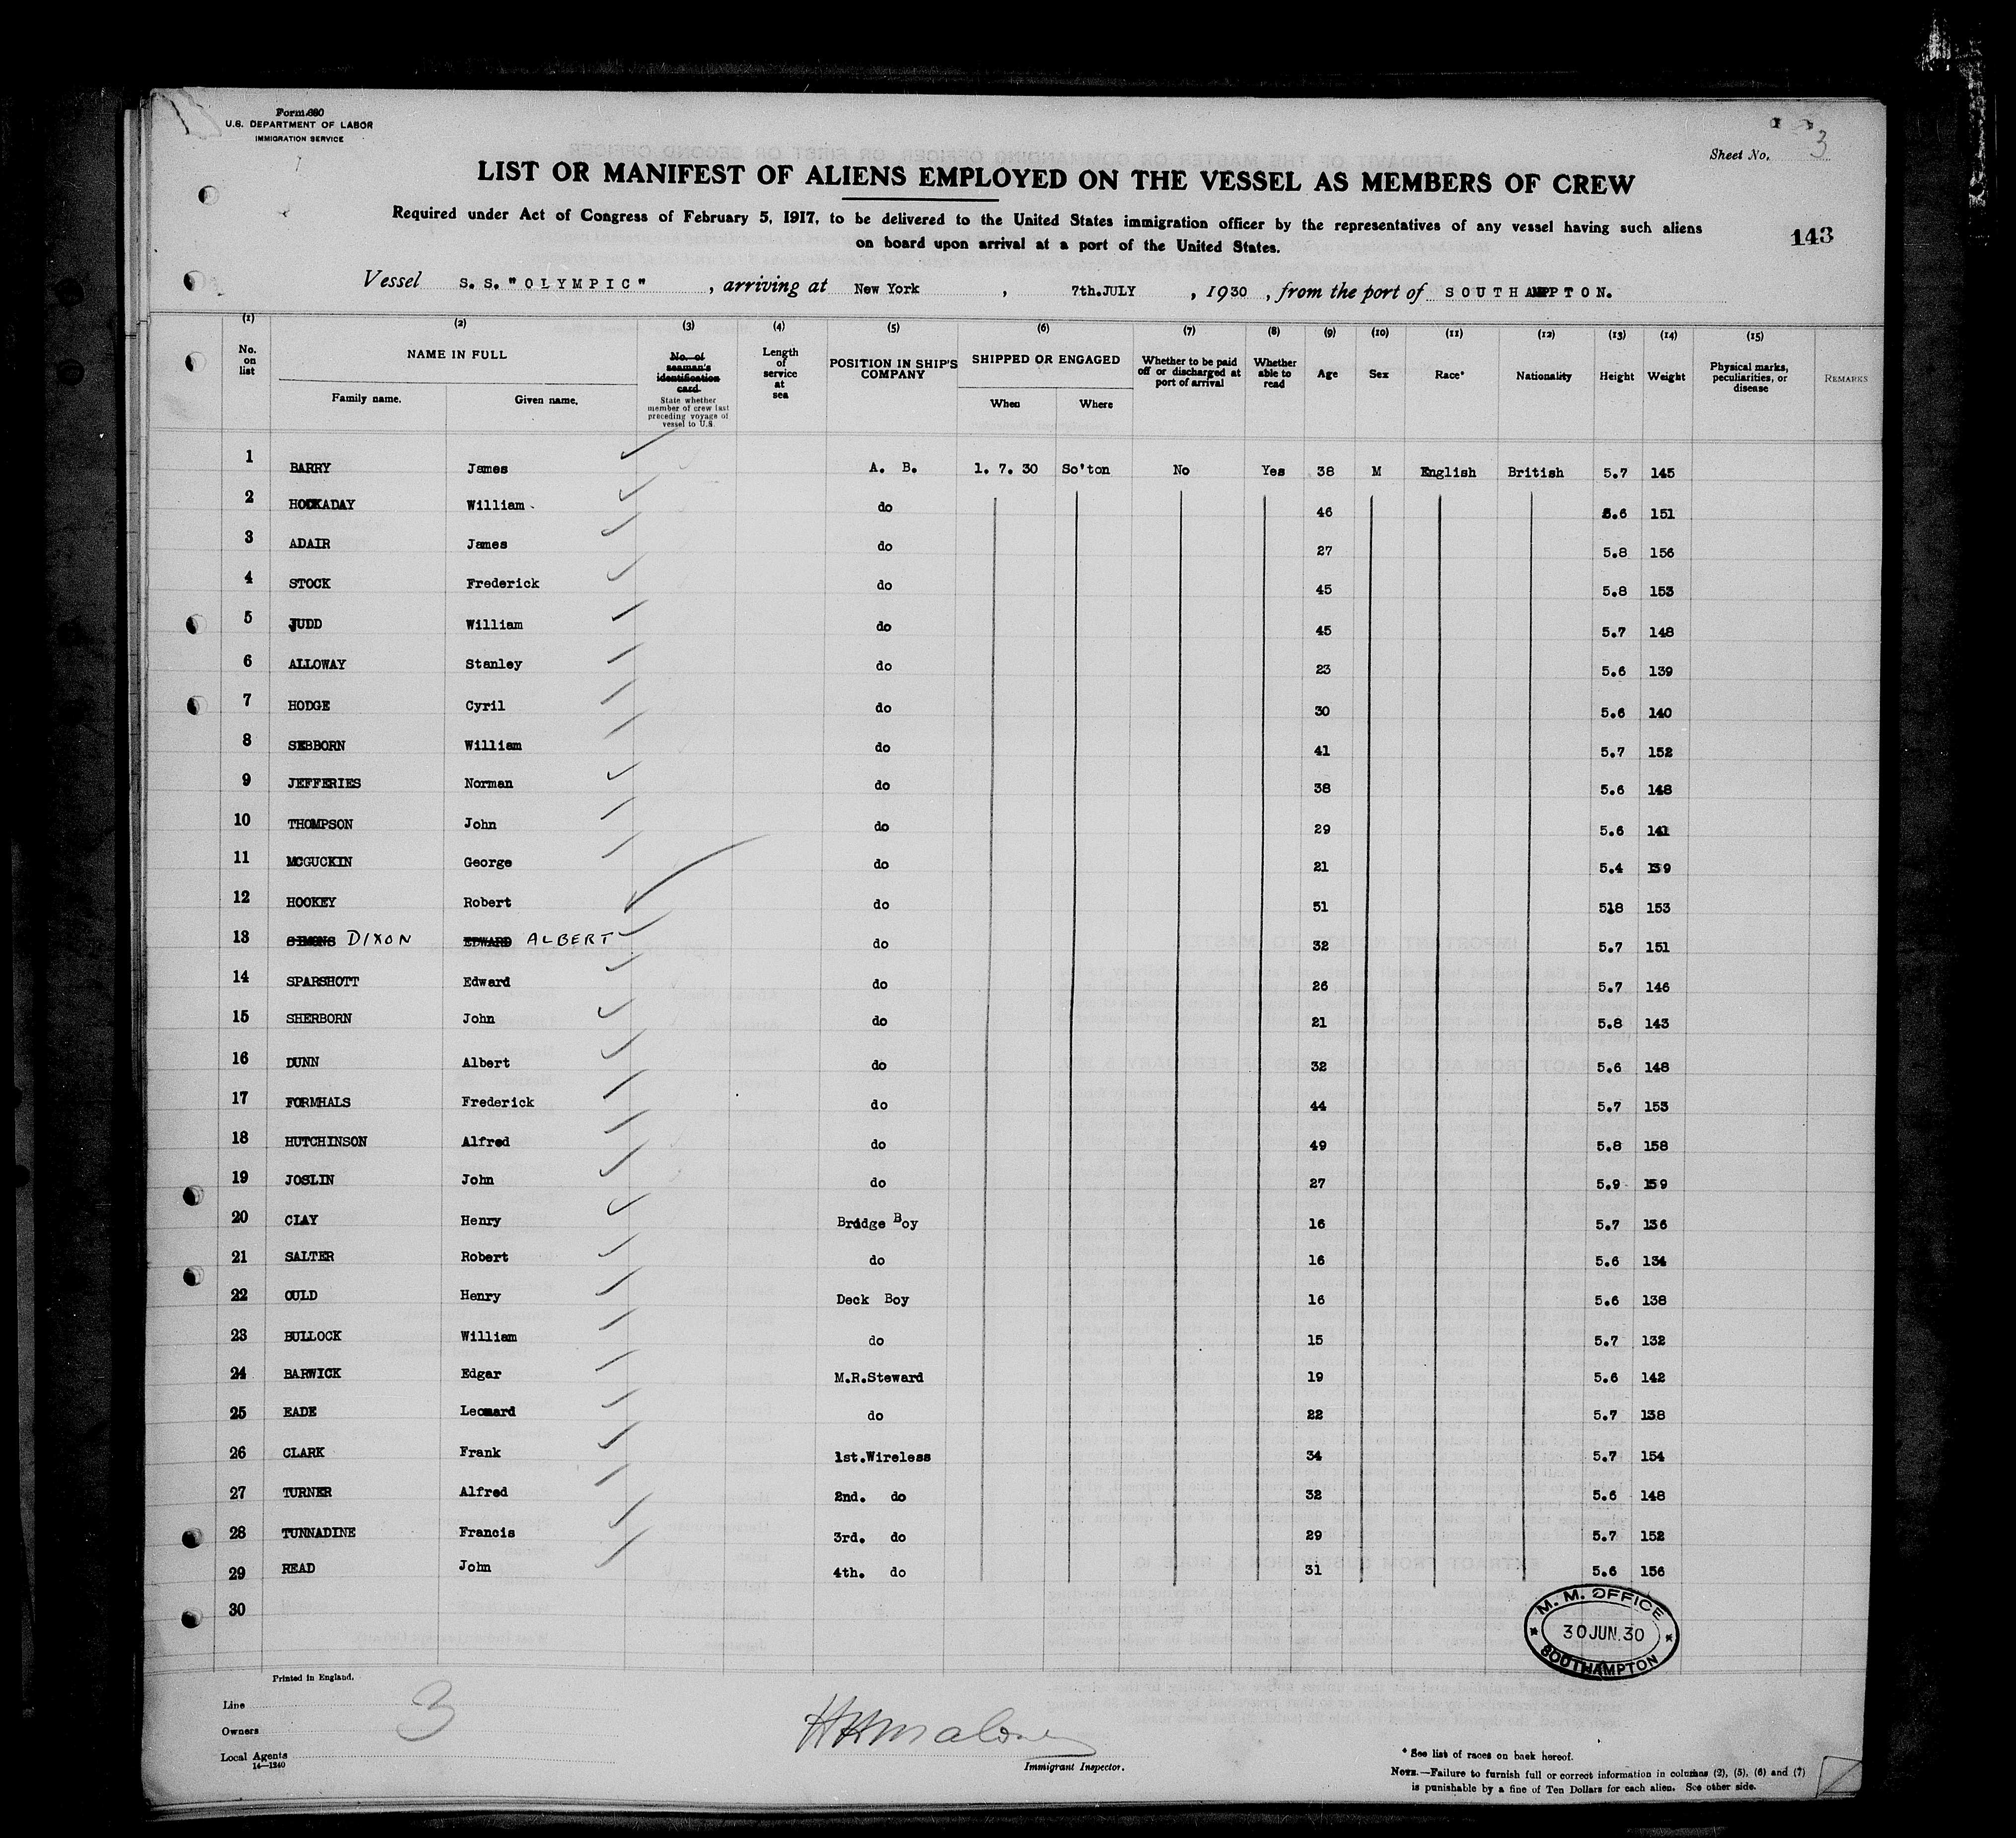 Form 680
U.S. DEPARTMENT OF LABOR
IMMIGRATION SERVICE
Sheet No. 3
LIST OR MANIFEST OF ALIENS EMPLOYED ON THE VESSEL AS MEMBERS OF CREW
Required under Act of Congress of February 5, 1917, to be delivered to the United States immigration officer by the representatives of any vessel having such aliens
on board upon arrival at a port of the United States.
143
Vessel S.S. "OLYMPIC", arriving at New York, 7th.JULY, 1930, from the port of SOUTHAMPTON.
(1) (2) (3) (4) (5) (6) (7) (8) (9) (10) (11) (12) (13) (14) (15)
No. on list
NAME IN FULL
Family name. Given name.
No. of seaman's identification card.
State whether member of crew last preceding voyage of vessel to U.S.
Length of service at sea
POSITION IN SHIP'S COMPANY
SHIPPED OR ENGAGED
When Where
Whether to be paid off or discharged at port of arrival
Whether able to read
Age
Sex
Race*
Nationality
Height
Weight
Physical marks, peculiarities, or disease
REMARKS
1 BARRY James A. B. 1. 7. 30 So'ton No Yes 38 M English British 5.7 145
2 HOCKADAY William do 46 5.6 151
3 ADAIR James do 27 5.8 156
4 STOCK Frederick do 45 5.8 153
5 JUDD William do 45 5.7 148
6 ALLOWAY Stanley do 23 5.6 139
7 HODGE Cyril do 30 5.6 140
8 SEBBORN William do 41 5.7 152
9 JEFFERIES Norman do 38 5.6 148
10 THOMPSON John do 29 5.6 141
11 MCGUCKIN George do 21 5.4 139
12 HOOKEY Robert do 51 5.8 153
13 SIMONS DIXON EDWARD ALBERT do 32 5.7 151
14 SPARSHOTT Edward do 26 5.7 146
15 SHERBORN John do 21 5.8 143
16 DUNN Albert do 32 5.6 148
17 FORMHALS Frederick do 44 5.7 153
18 HUTCHINSON Alfred do 49 5.8 158
19 JOSLIN John do 27 5.9 159
20 CLAY Henry Bridge Boy 16 5.7 136
21 SALTER Robert do 16 5.6 134
22 OULD Henry Deck Boy 16 5.6 138
23 BULLOCK William do 15 5.7 132
24 BARWICK Edgar M.R.Steward 19 5.6 142
25 EADE Leonard do 22 5.7 138
26 CLARK Frank 1st.Wireless 34 5.7 154
27 TURNER Alfred 2nd. do 32 5.6 148
28 TUNNADINE Francis 3rd. do 29 5.7 152
29 READ John 4th. do 31 5.6 156
30
M. M. OFFICE
30 JUN.30
SOUTHAMPTON
Printed in England.
Line
Owners
Local Agents
14—1240
3
HHMalone
Immigrant Inspector.
* See list of races on back hereof.
NOTE.—Failure to furnish full or correct information in columns (2), (5), (6) and (7)
is punishable by a fine of Ten Dollars for each alien. See other side.